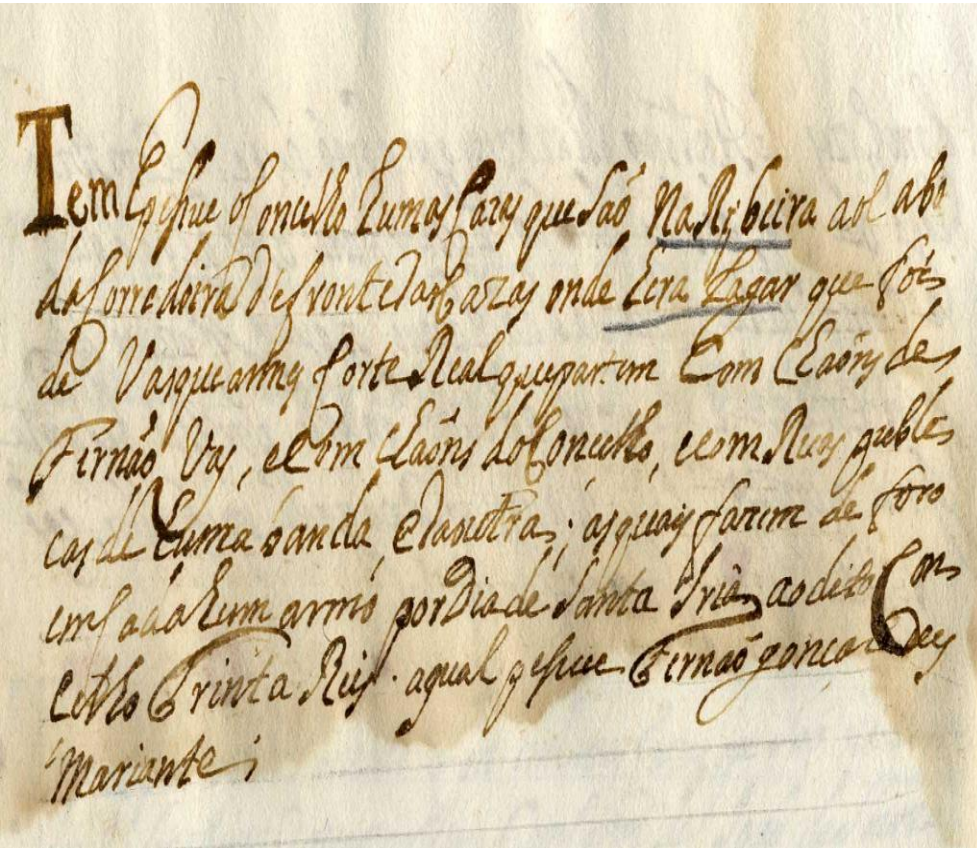 Tem E pessue o Concelho humas Cazas que são Na Ribeira aol abo
da Corredoira defronte das Cazas onde hera Lagar que foi
de Vasqueannes Corte Real que partem Com Chaõns de
Fernaõ Vas, e Com Chaõns do Concelho, e com Ruas puble
cas de huma banda e da outra; as quais fazem de foro
em Cada hum anno por Dia de Santa Iria ao dito Con
celho Trinta Reis. a qual pessue Fernaõ goncalves
Mariante;